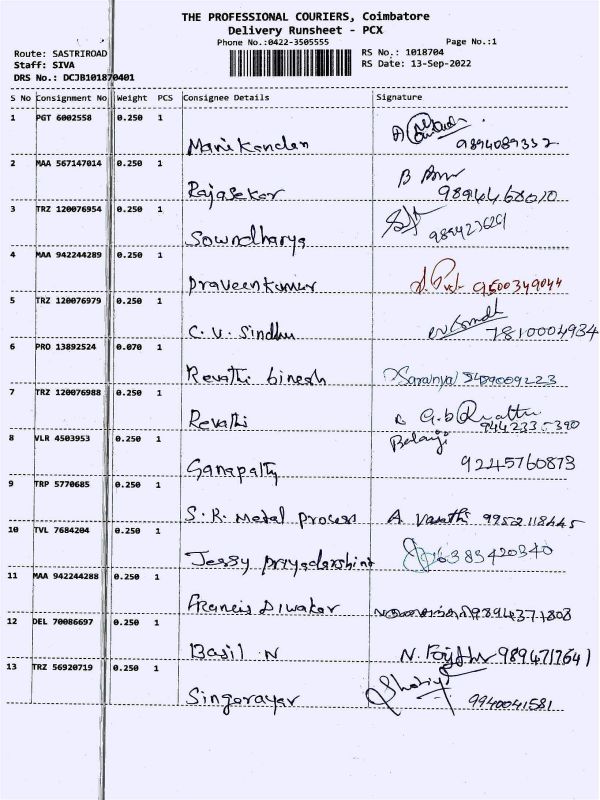 THE PROFESSIONAL COURIERS, Coimbatore
Delivery Runsheet - PCX
Phone No.:0422-3505555 Page No.:1
Route: SASTRIROAD RS No.: 1018704
Staff: SIVA RS Date: 13-Sep-2022
DRS No.: DCJB101870401
S No Consignment No Weight PCS Consignee Details Signature
1 PGT 6002558 0.250 1
Manikandan 9894089332
2 MAA 567147014 0.250 1
Rajasekar 9894468010
3 TRZ 120076954 0.250 1
Sowndharya
4 MAA 942244289 0.250 1
Praveenkumar 9500349044
5 TRZ 120076979 0.250 1
C. V. Sindhu 7810004934
6 PRO 13892524 0.070 1
Revathi binesh Saranya 9489009223
7 TRZ 120076988 0.250 1
Revathi 944233-390
8 VLR 4503953 0.250 1 Balaji
Ganapathy 9245760873
9 TRP 5770685 0.250 1
S. R. Metal process A Vasathi 9952118445
10 TVL 7684204 0.250 1
Jessy priyadarshini 6383420340
11 MAA 942244288 0.250 1
Francis Diwakar 9894371803
12 DEL 70086697 0.250 1
Basil N 9894717641
13 TRZ 56920719 0.250 1
Singarayar 9940041581